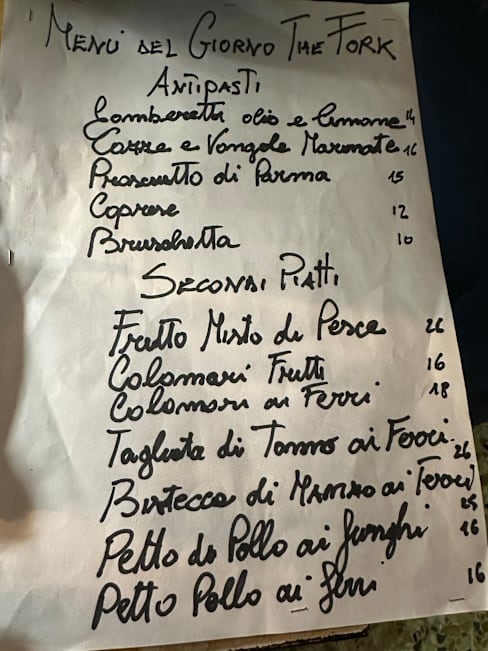 MENÙ DEL GIORNO THE FORK
ANTIPASTI
Gamberetti olio e limone 14
Cozze e Vongole Marinate 16
Prosciutto di Parma 15
Caprese 12
Bruschetta 10
SECONDI PIATTI
Fritto Misto di Pesce 26
Calamari Fritti 16
Calamari ai Ferri 18
Tagliata di Tonno ai Ferri 26
Bistecca di MANZO ai Ferri 25
Petto di Pollo ai funghi 16
Petto Pollo ai ferri 16